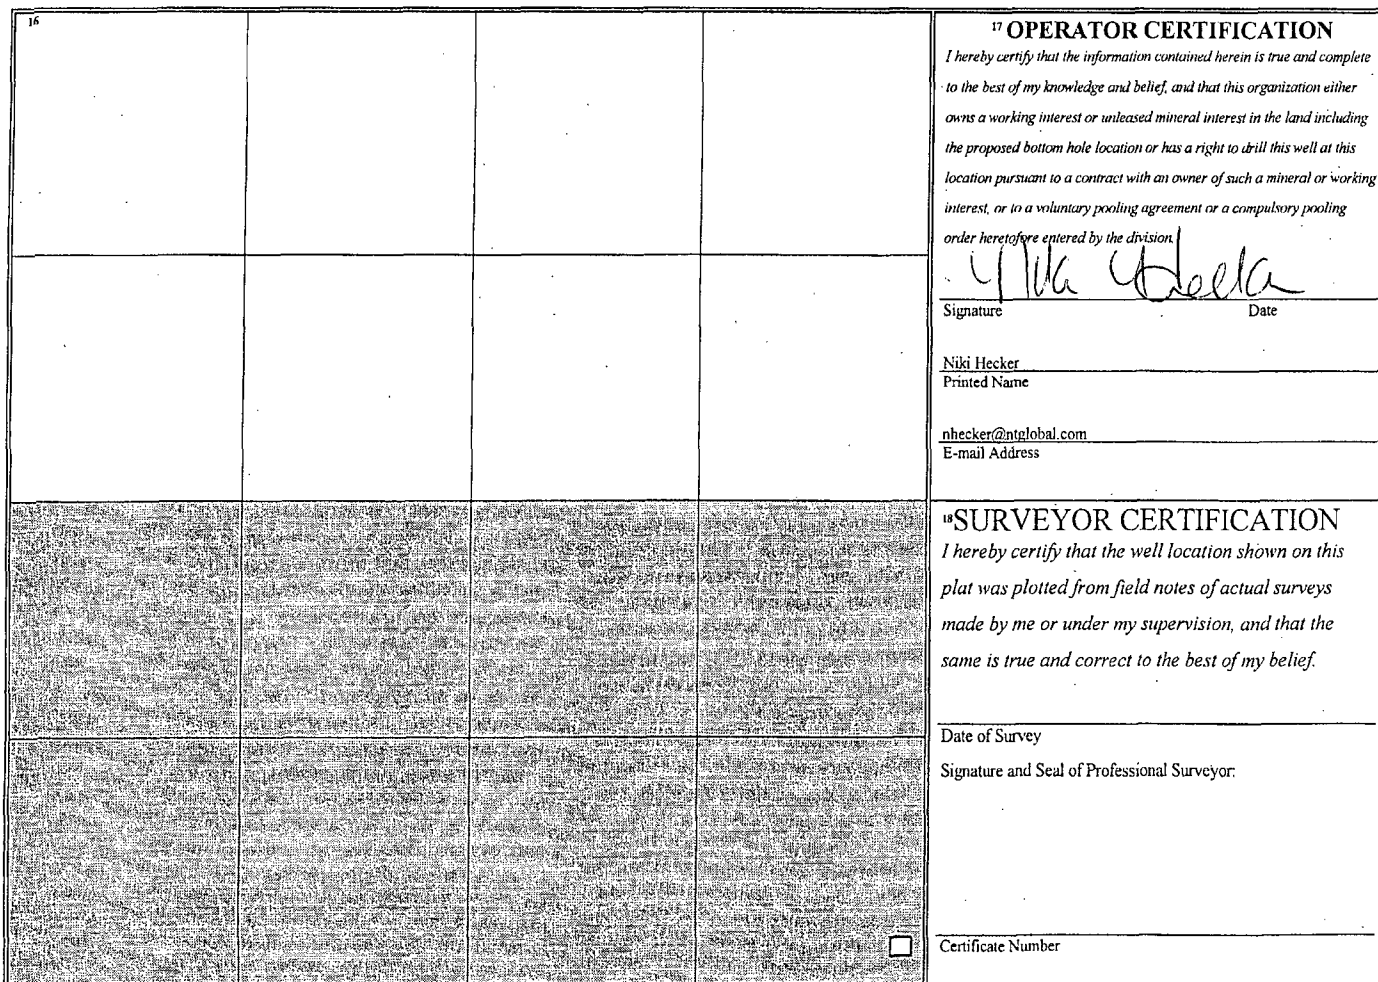 16
17 OPERATOR CERTIFICATION
I hereby certify that the information contained herein is true and complete
to the best of my knowledge and belief, and that this organization either
owns a working interest or unleased mineral interest in the land including
the proposed bottom hole location or has a right to drill this well at this
location pursuant to a contract with an owner of such a mineral or working
interest, or to a voluntary pooling agreement or a compulsory pooling
order heretofore entered by the division.
Niki Hecker
Signature Date
Niki Hecker
Printed Name
nhecker@ntglobal.com
E-mail Address
18 SURVEYOR CERTIFICATION
I hereby certify that the well location shown on this
plat was plotted from field notes of actual surveys
made by me or under my supervision, and that the
same is true and correct to the best of my belief.
Date of Survey
Signature and Seal of Professional Surveyor:
Certificate Number